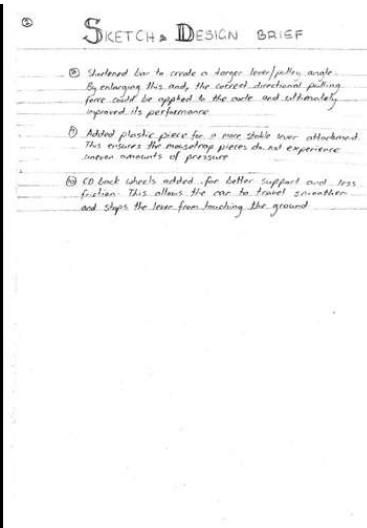 ② SKETCH & DESIGN BRIEF
⑧ Shortened bar to create a larger lever/pulley angle.
By enlarging this and, the correct directional pulling
force could be applied to the axle and ultimately
improved its performance
⑨ Added plastic piece for a more stable lever attachment.
This ensures the mousetrap pieces do not experience
uneven amounts of pressure
⑩ CD back wheels added for better support and less
friction. This allows the car to travel smoother
and stops the lever from touching the ground